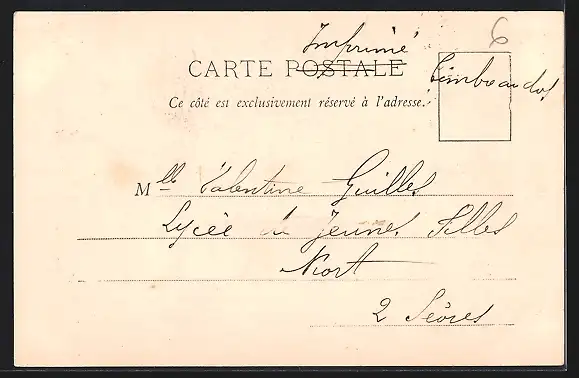 6
Imprimé
CARTE POSTALE
Timbre au dos
Ce côté est exclusivement réservé à l'adresse.
Mlle Valentine Guilles
Lycée de Jeunes Filles
Niort
2 Sèvres